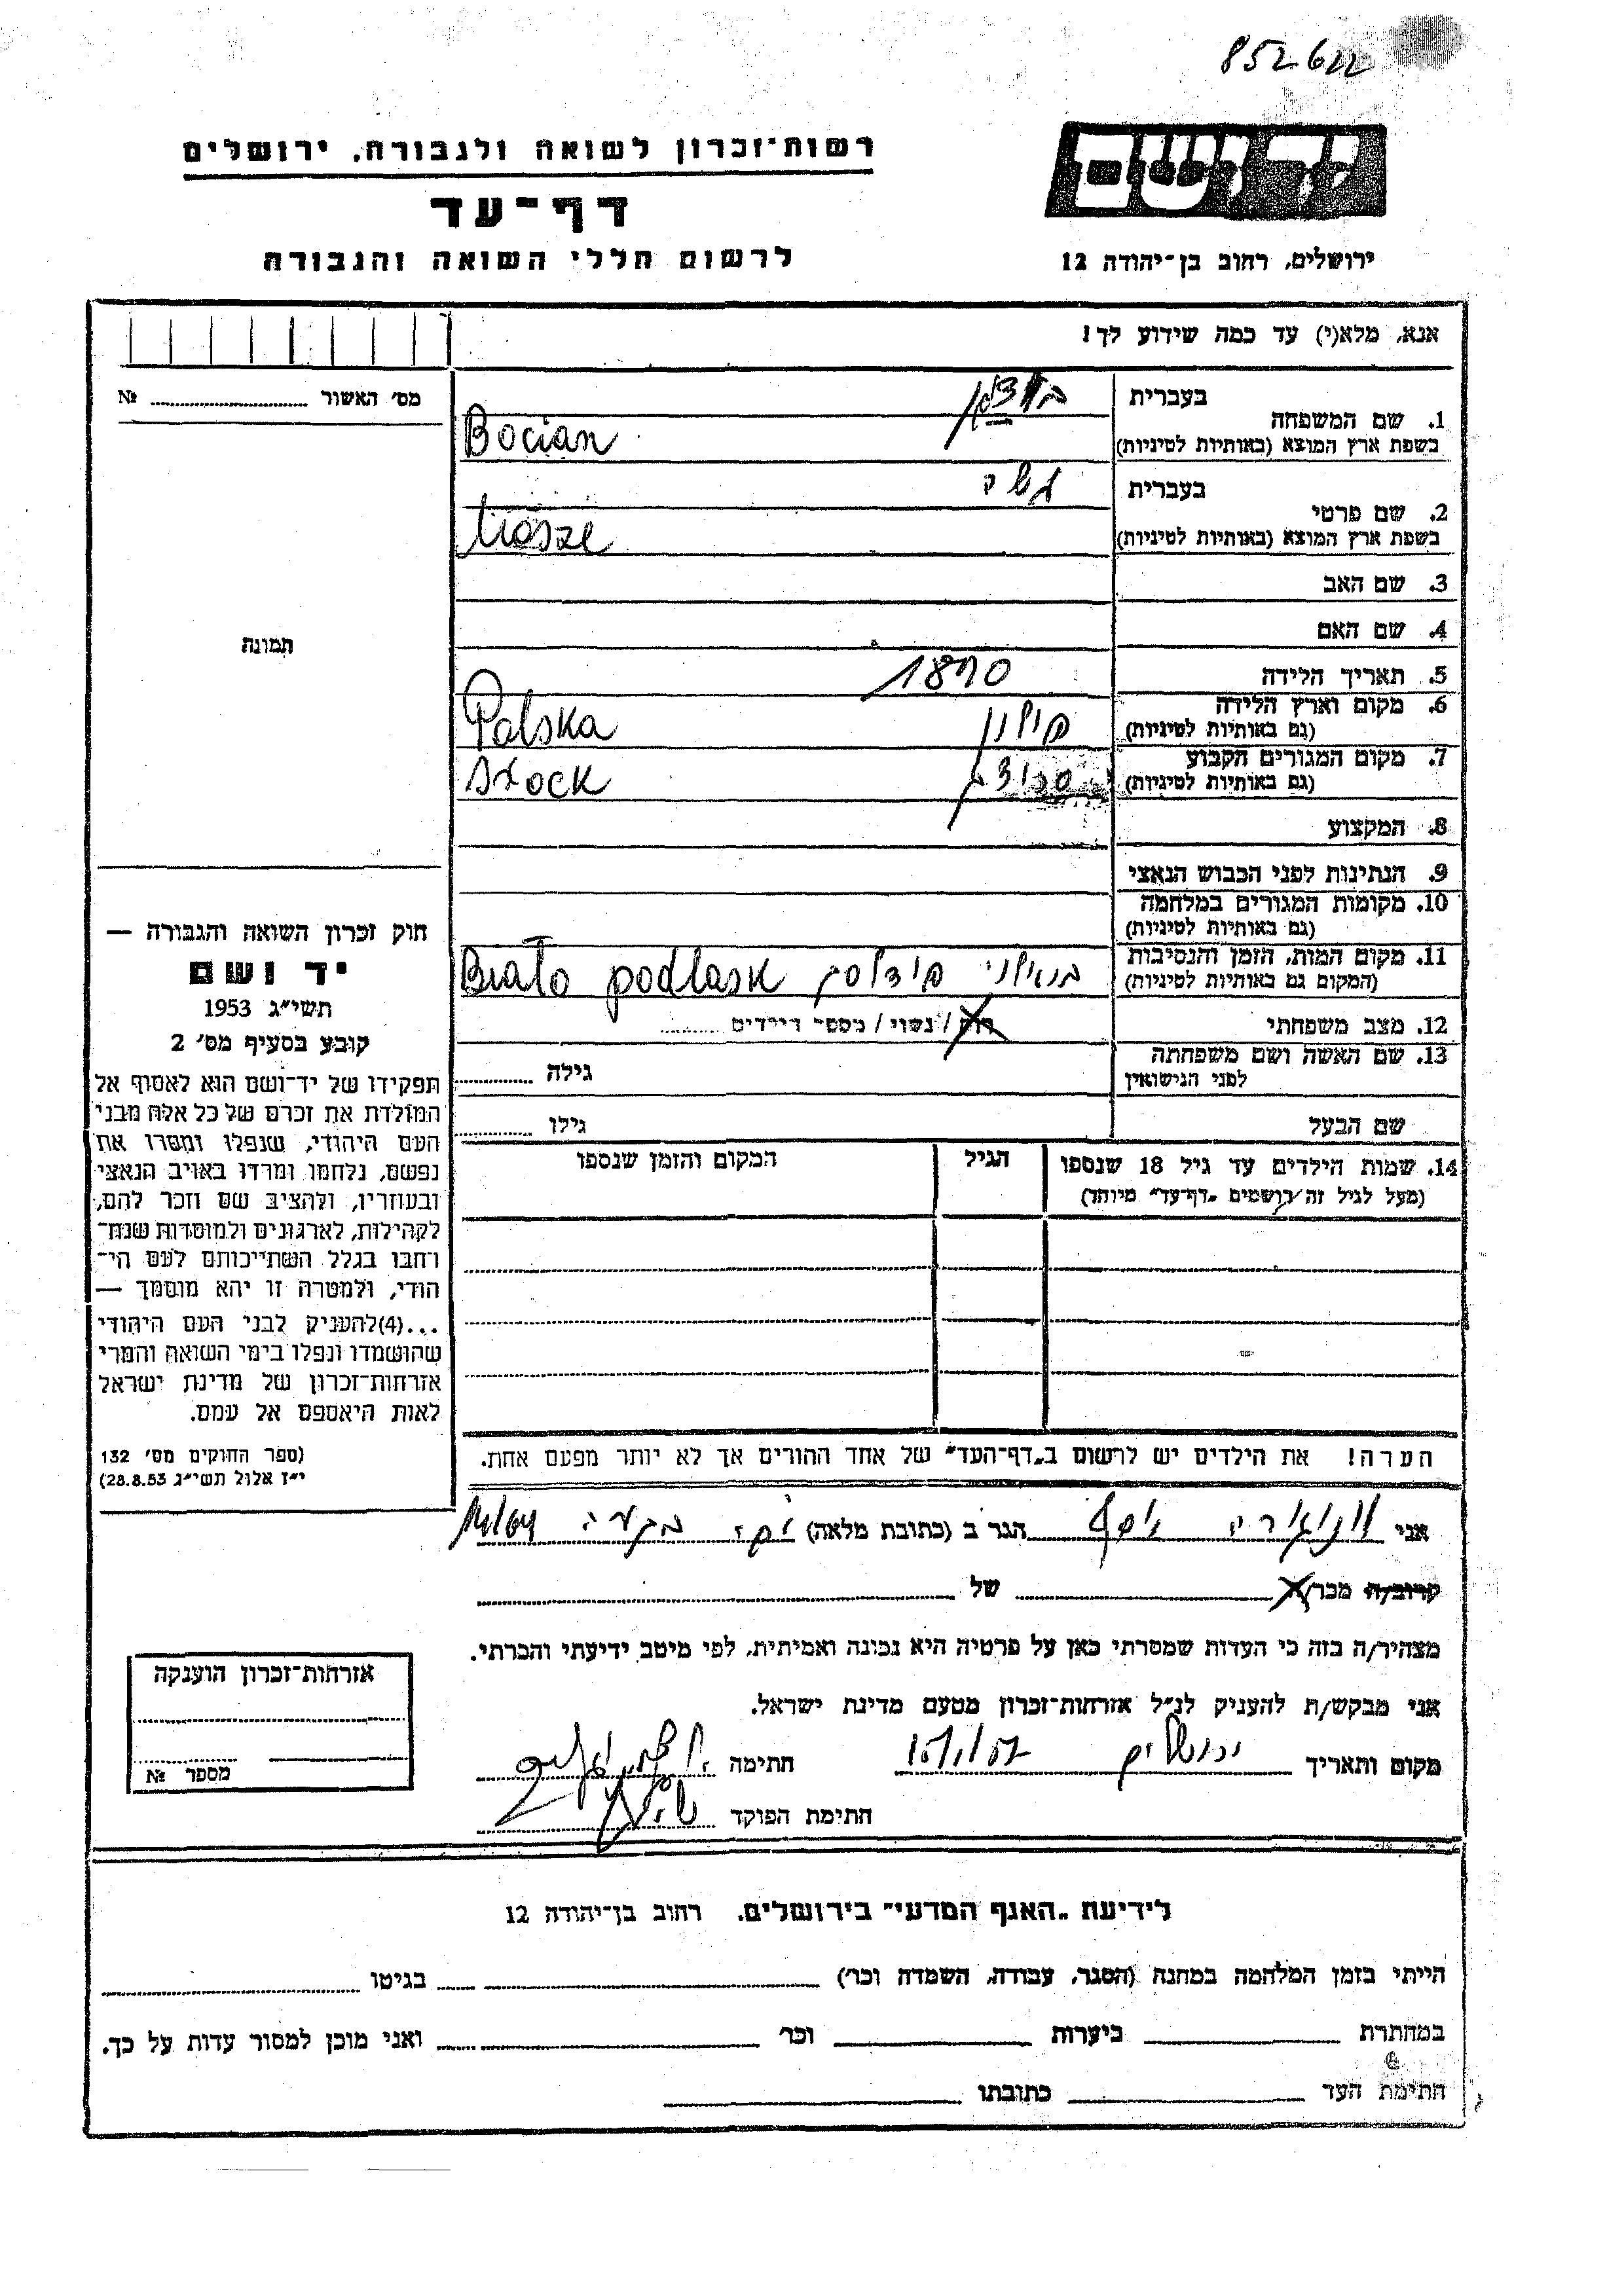 852622
רשות־זכרון לשואה ולגבורה, ירושלים
יד ושם
דף־עד
לרשום חללי השואה והגבורה
ירושלים, רחוב בן־יהודה 12
אנא, מלא(י) עד כמה שידוע לך!
מס׳ האשור № 
1. שם המשפחה בעברית
בשפת ארץ המוצא (באותיות לטיניות) Bocian
2. שם פרטי בעברית משה
בשפת ארץ המוצא (באותיות לטיניות) Mosze
3. שם האב
4. שם האם
5. תאריך הלידה 1890
6. מקום וארץ הלידה (גם באותיות לטיניות) פולין Polska
7. מקום המגורים הקבוע (גם באותיות לטיניות)
8. המקצוע
9. הנתינות לפני הכבוש הנאצי
10. מקומות המגורים במלחמה (גם באותיות לטיניות)
11. מקום המות, הזמן והנסיבות (המקום גם באותיות לטיניות) Biało podlask
12. מצב משפחתי רוק / נשוי / מספר הילדים
13. שם האשה ושם משפחתה לפני הנישואין גילה
שם הבעל גילו
14. שמות הילדים עד גיל 18 שנספו הגיל המקום והזמן שנספו
(מעל לגיל זה רושמים "דף־עד" מיוחד)
הערה! את הילדים יש לרשום ב"דף־העד" של אחד ההורים אך לא יותר מפעם אחת.
תמונה
חוק זכרון השואה והגבורה —
יד ושם
תשי״ג 1953
קובע בסעיף מס׳ 2
תפקידו של יד־ושם הוא לאסוף אל
המולדת את זכרם של כל אלה מבני
העם היהודי, שנפלו ומסרו את
נפשם, נלחמו ומרדו באויב הנאצי
ובעוזריו, ולהציב שם וזכר להם,
לקהילות, לארגונים ולמוסדות שנח־
רחבו בגלל השתייכותם לעם הי־
הודי, ולמטרה זו יהא מוסמך —
...(4)להעניק לבני העם היהודי
שהושמדו ונפלו בימי השואה והמרי
אזרחות־זכרון של מדינת ישראל
לאות היאספם אל עמם.
(ספר החוקים מס׳ 132
י״ז אלול תשי״ג 28.8.53)
אני הגר ב (כתובת מלאה)
קרוב/ה מכר/ה של
מצהיר/ה בזה כי העדות שמסרתי כאן על פרטיה היא נכונה ואמיתית, לפי מיטב ידיעתי והכרתי.
אני מבקש/ת להעניק לנ״ל אזרחות־זכרון מטעם מדינת ישראל.
מקום ותאריך ירושלים חתימה
חתימת הפוקד
אזרחות־זכרון הוענקה
מספר №
לידיעת "האגף המדעי" בירושלים, רחוב בן־יהודה 12
הייתי בזמן המלחמה במחנה (הסגר, עבודה, השמדה וכר׳) בגיטו
במחתרת ביערות וכר׳ ואני מוכן למסור עדות על כך.
חתימת העד כתובתו